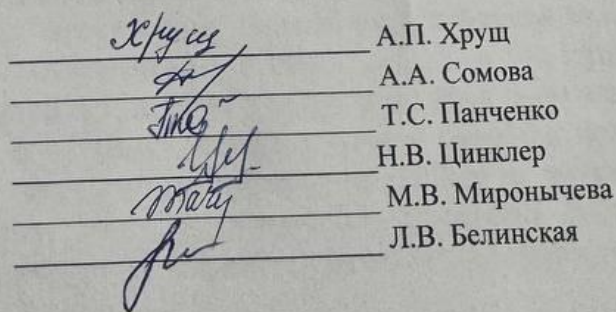 Хрущ А.П. Хрущ
А.А. Сомова
Т.С. Панченко
Н.В. Цинклер
М.В. Миронычева
Л.В. Белинская